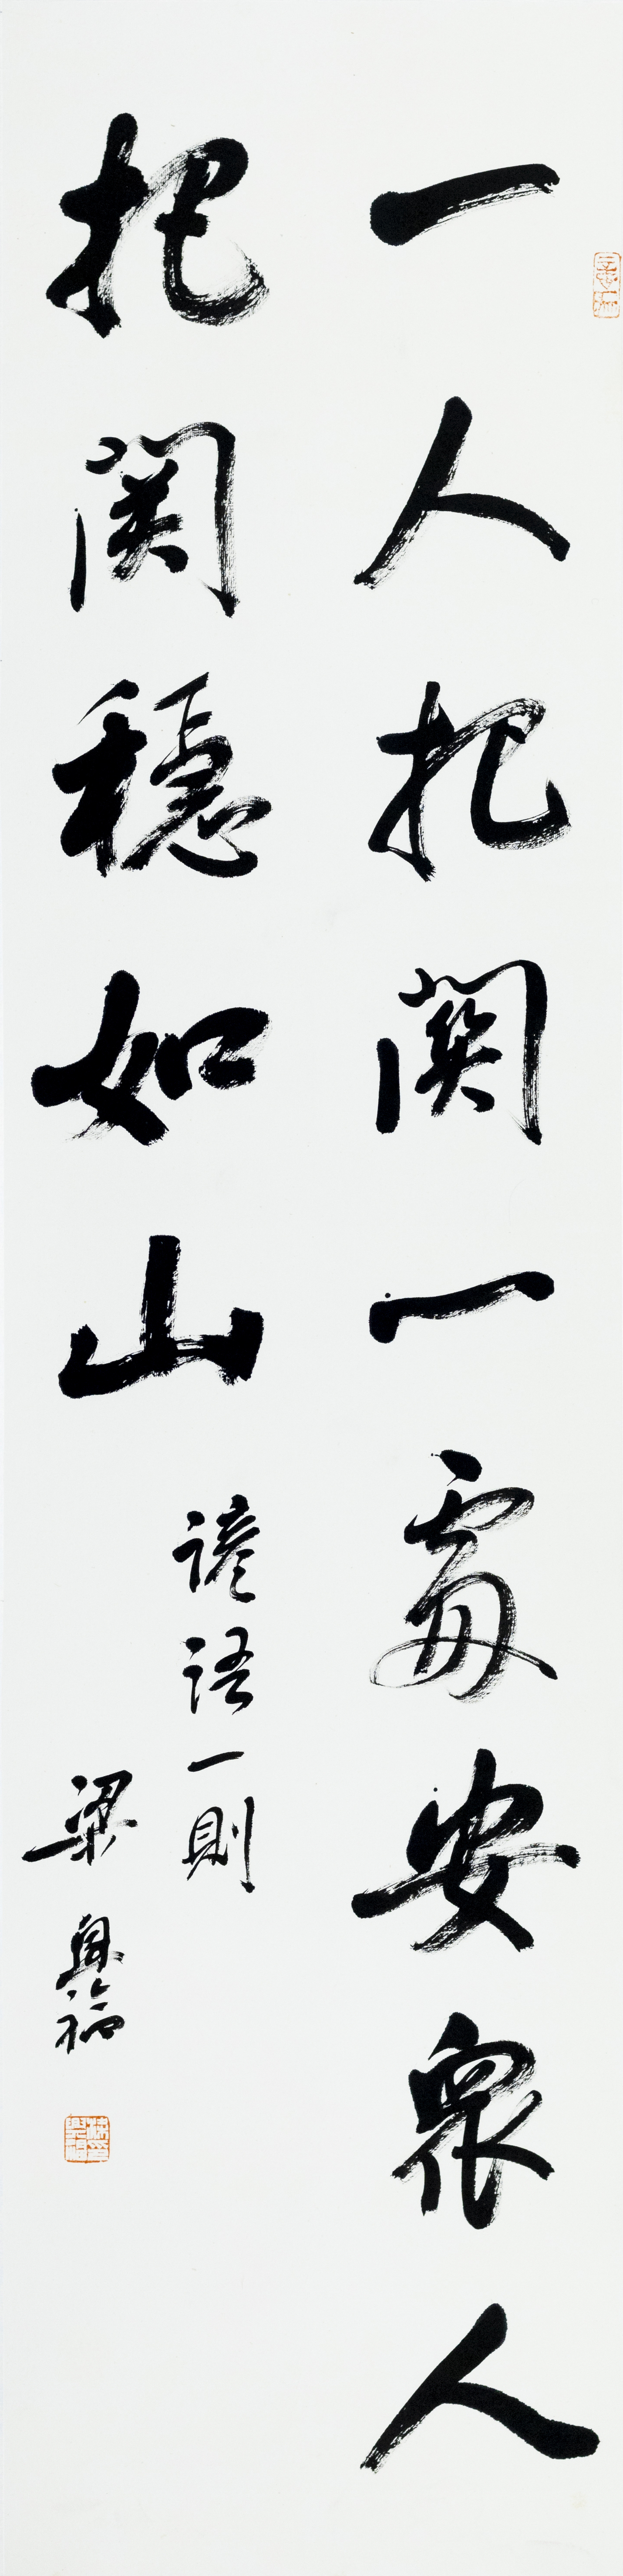 一人把關一處安眾人
把關穩如山
諺語一則
梁興福